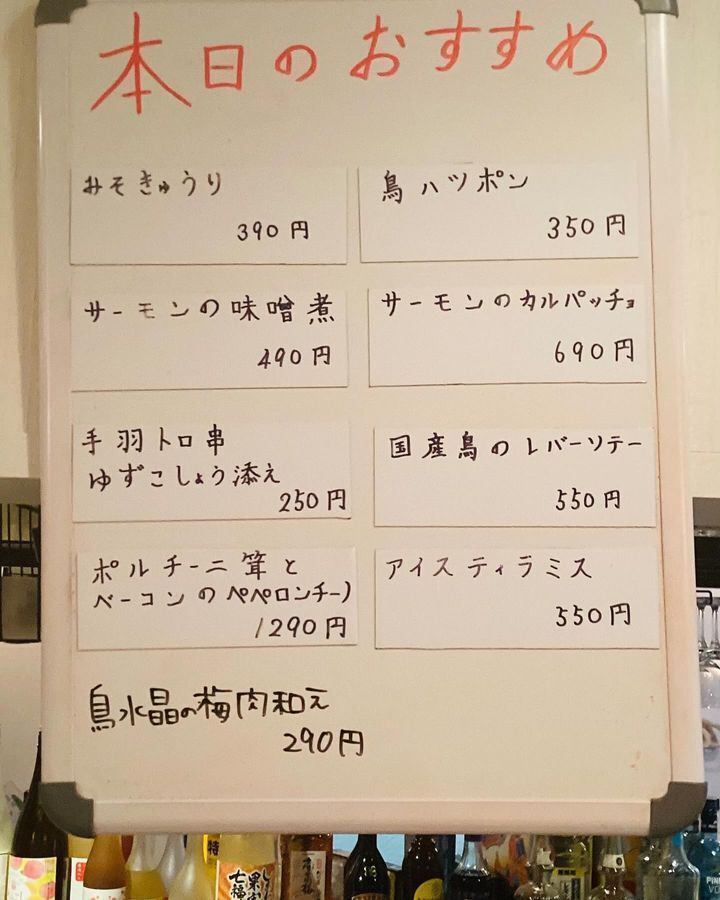 本日のおすすめ
みそきゅうり
390円
鳥ハツポン
350円
サーモンの味噌煮
490円
サーモンのカルパッチョ
690円
手羽トロ串
ゆずこしょう添え
250円
国産鳥のレバーソテー
550円
ポルチーニ茸と
ベーコンのペペロンチーノ
1290円
アイスティラミス
550円
鳥水晶の梅肉和え
290円
特
七福